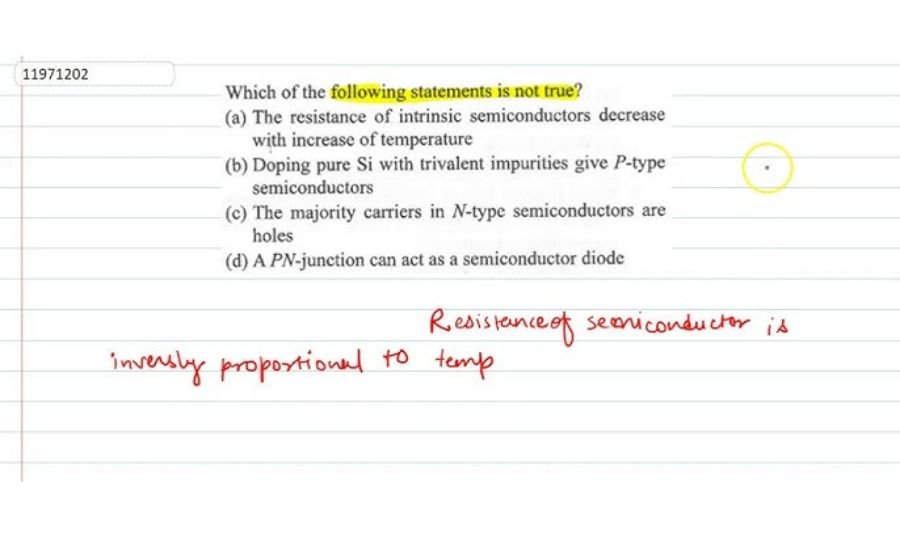 11971202
Which of the following statements is not true?
(a) The resistance of intrinsic semiconductors decrease
with increase of temperature
(b) Doping pure Si with trivalent impurities give P-type
semiconductors
(c) The majority carriers in N-type semiconductors are
holes
(d) A PN-junction can act as a semiconductor diode
Resistance of semiconductor is
inversly proportional to temp